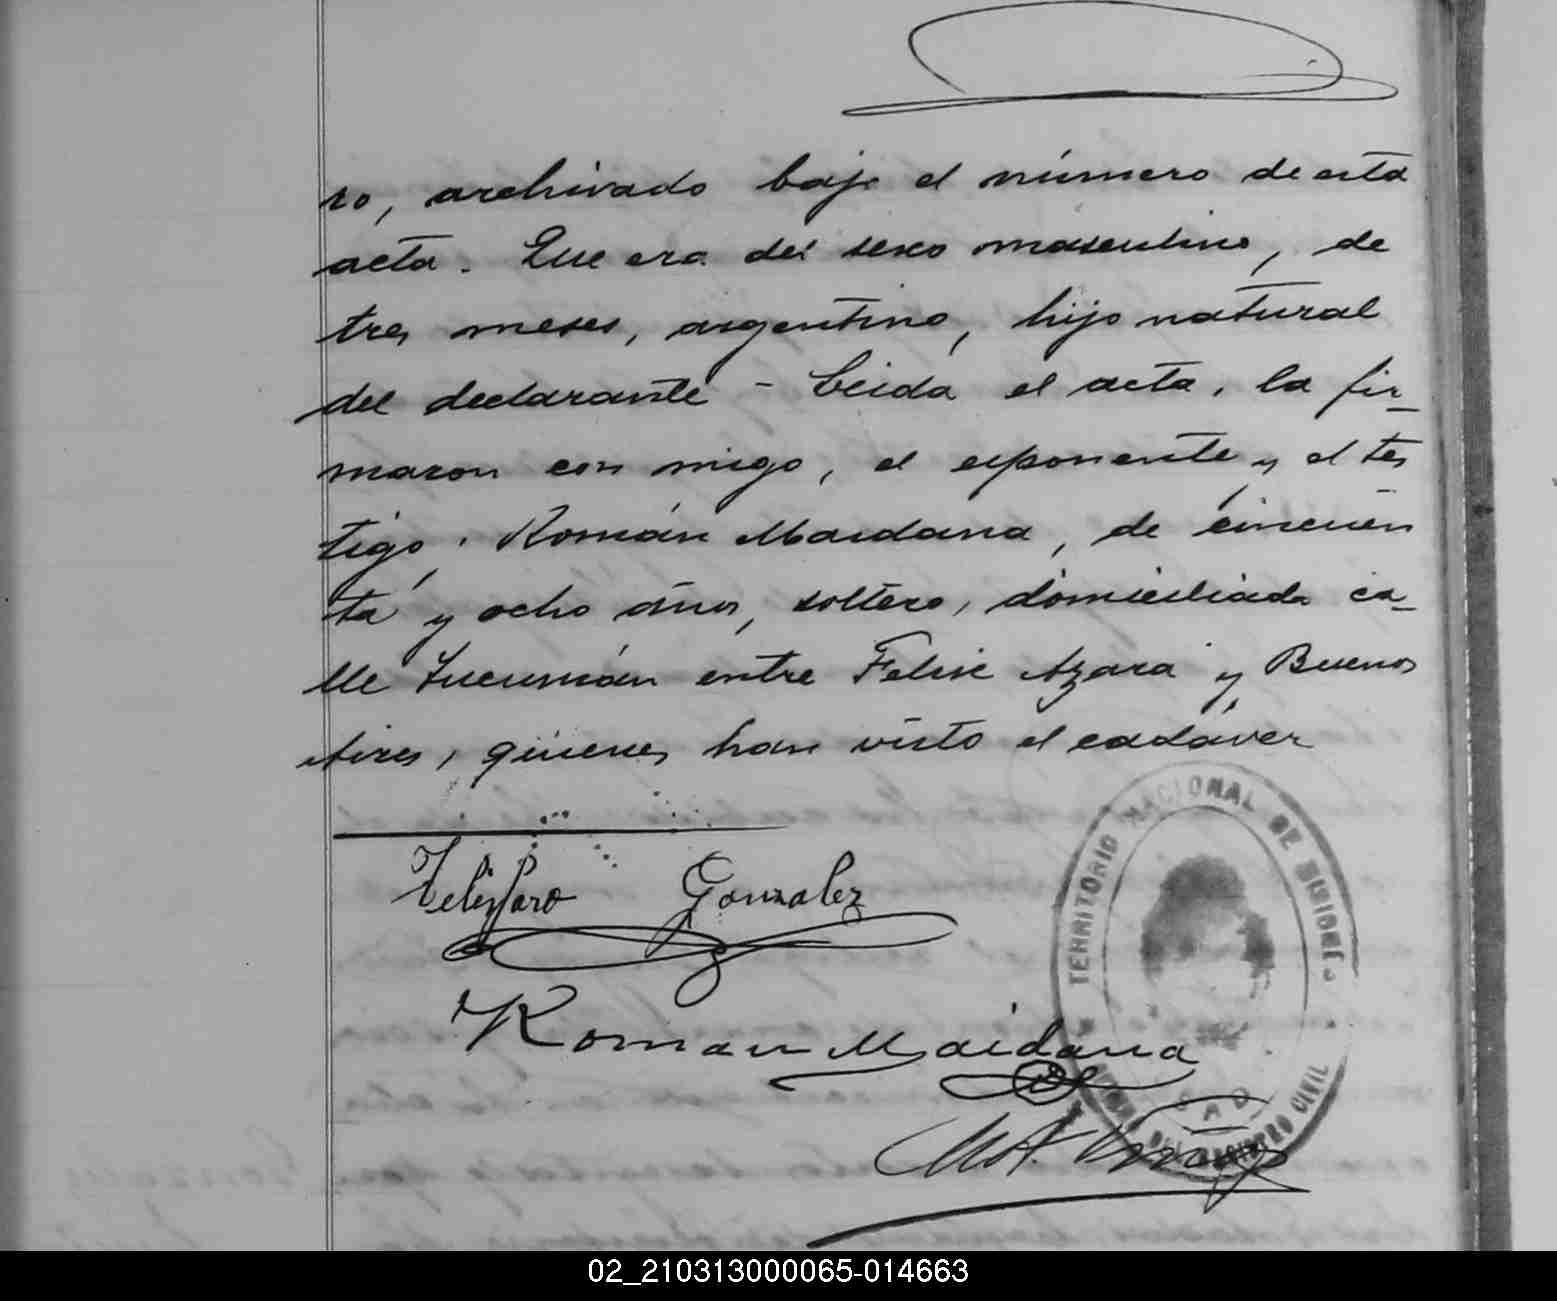 ro, archivado bajo el número de esta
acta. Que era del sexo masculino, de
tres meses, argentino, hijo natural
del declarante - Leida el acta, la fir-
maron con migo, el exponente y el tes
tigo, Román Maidana, de cincuen
ta y ocho años, soltero, domiciliado ca-
lle Tucumán entre Felix Azara y Buenos
Aires, quienes han visto el cadáver
Telesforo Gonzalez
TERRITORIO NACIONAL DE MISIONES
Roman Maidana
REGISTRO CIVIL
02_210313000065-014663